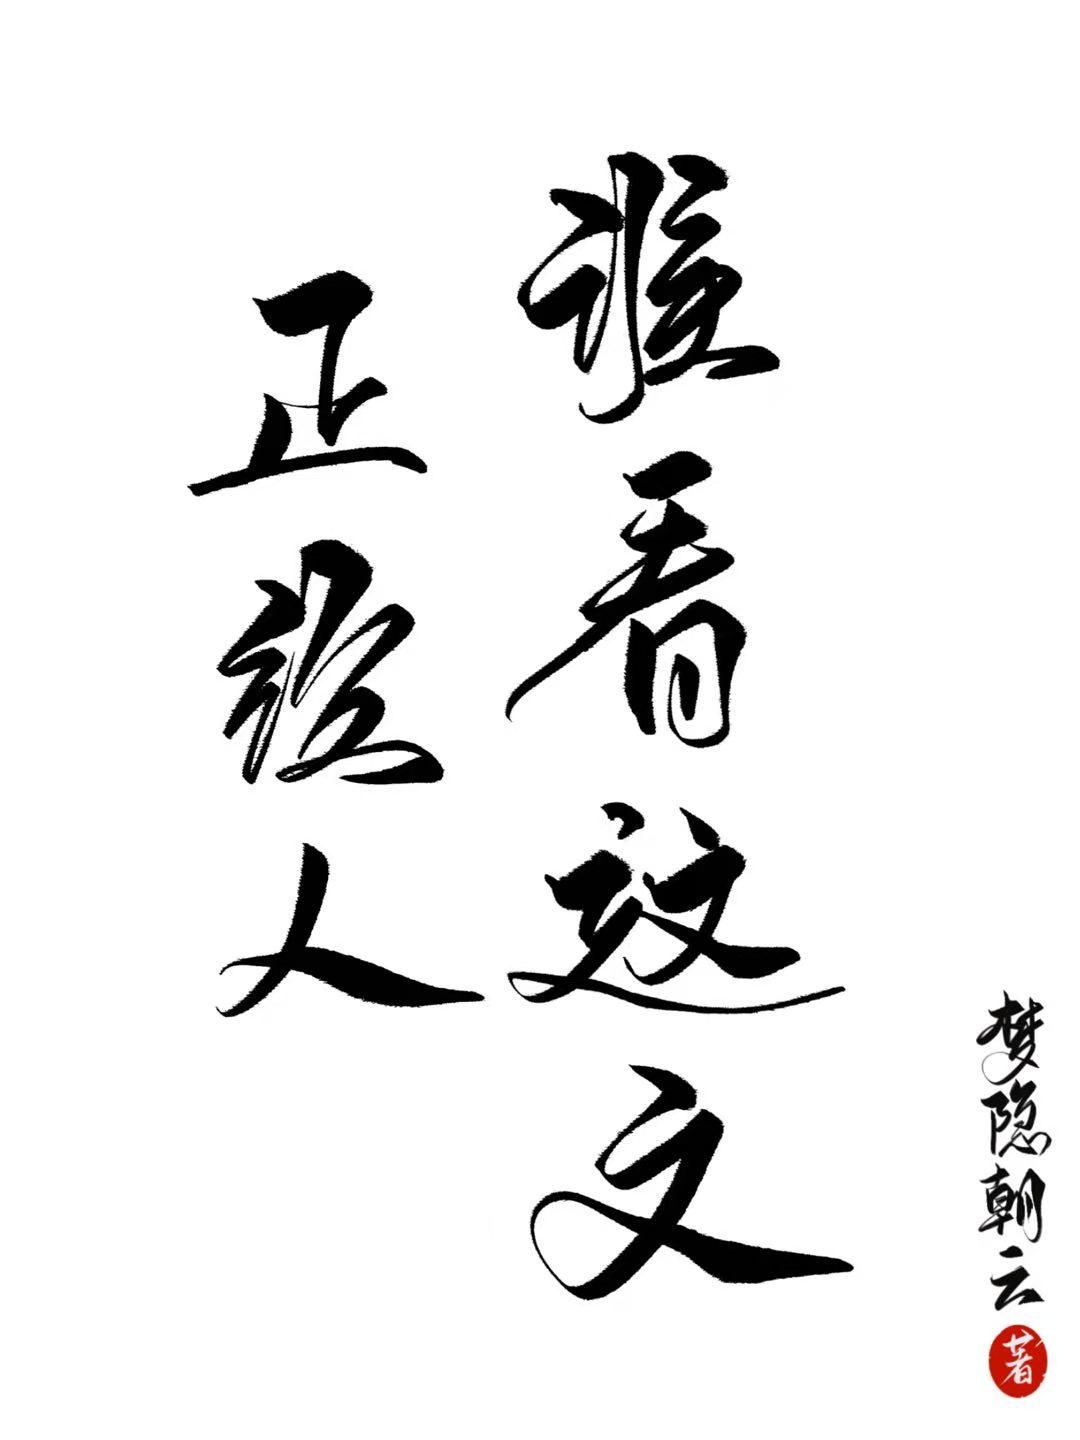 谁看这文
正经人
梦隐朝云
著